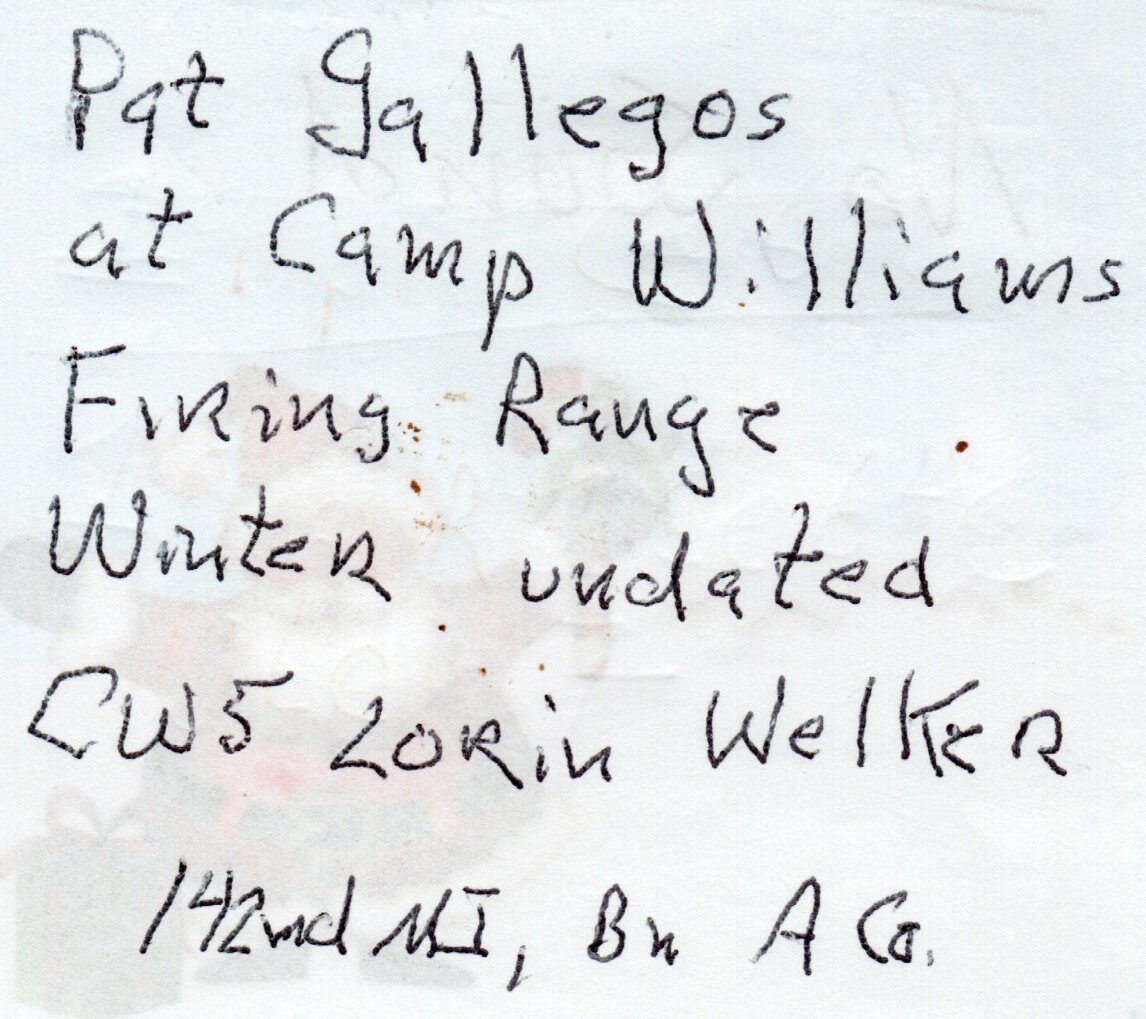 Pat Gallegos
at Camp Williams
Firing Range
Winter undated
CW5 Lorin Welker
142nd MI, Bn A Co.